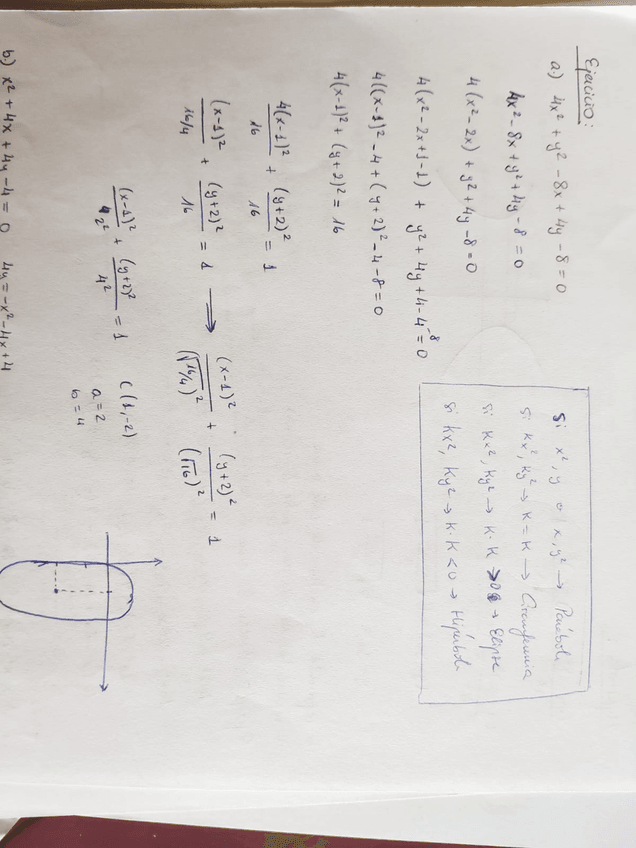 Ejercicio:
a) 4x² + y² - 8x + 4y - 8 = 0
4x² - 8x + y² + 4y - 8 = 0
4(x² - 2x) + y² + 4y - 8 = 0
4(x² - 2x + 1 - 1) + y² + 4y + 4 - 4 - 8 = 0
4((x-1)² - 4 + (y+2)² - 4 - 8 = 0
4(x-1)² + (y+2)² = 16
4(x-1)²/16 + (y+2)²/16 = 1
(x-1)²/16/4 + (y+2)²/16 = 1 ⟹ (x-1)²/(√16/4)² + (y+2)²/(√16)² = 1
(x-1)²/2² + (y+2)²/4² = 1
C(1,-2)
a = 2
b = 4
b) x² + 4x + 4y - 4 = 0 4y = -x² - 4x + 4
Si x², y o x, y² → Parábola
Si kx², ky² → k = k → Circunferencia
Si kx², ky² → k·k > 0 → Elipse
Si kx², ky² → k·k < 0 → Hipérbola